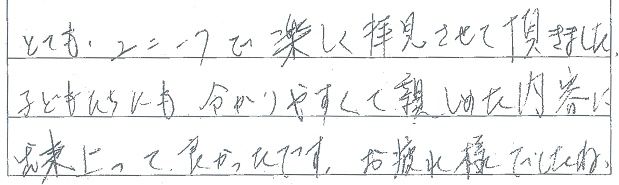 とても、ユニークで楽しく拝見させて頂きました。
子どもたちにも分かりやすくて親しめた内容に
出来上って、良かったです。お疲れ様でしたね。